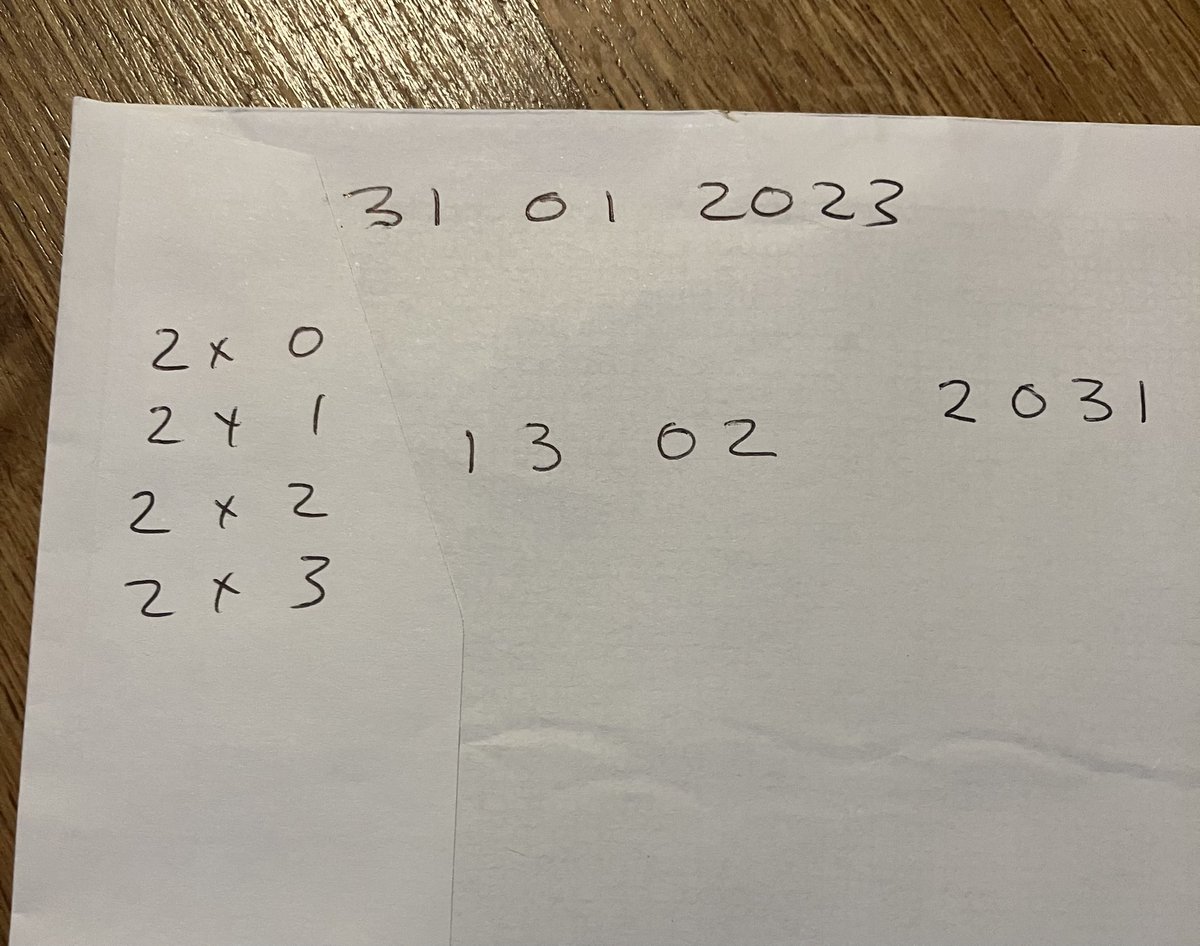 31 01 2023
2 x 0
2 x 1
13 02 2031
2 x 2
2 x 3